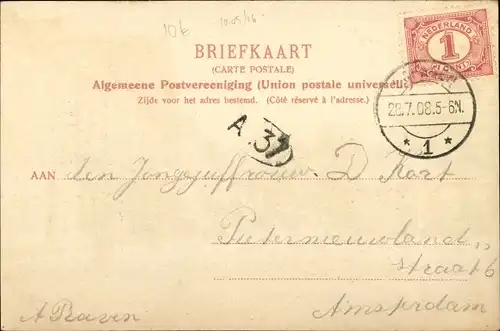 10k 10.05/26
BRIEFKAART
(CARTE POSTALE)
Algemeene Postvereeniging (Union postale universelle)
Zijde voor het adres bestemd. (Côté réservé à l'adresse.)
NEDERLAND
1
28.7.08.5-6N.
* 1 *
A 37
AAN den Jongejuffrouw D Kort
Pieternieuwland
straat 6
Amsterdam
A Raven